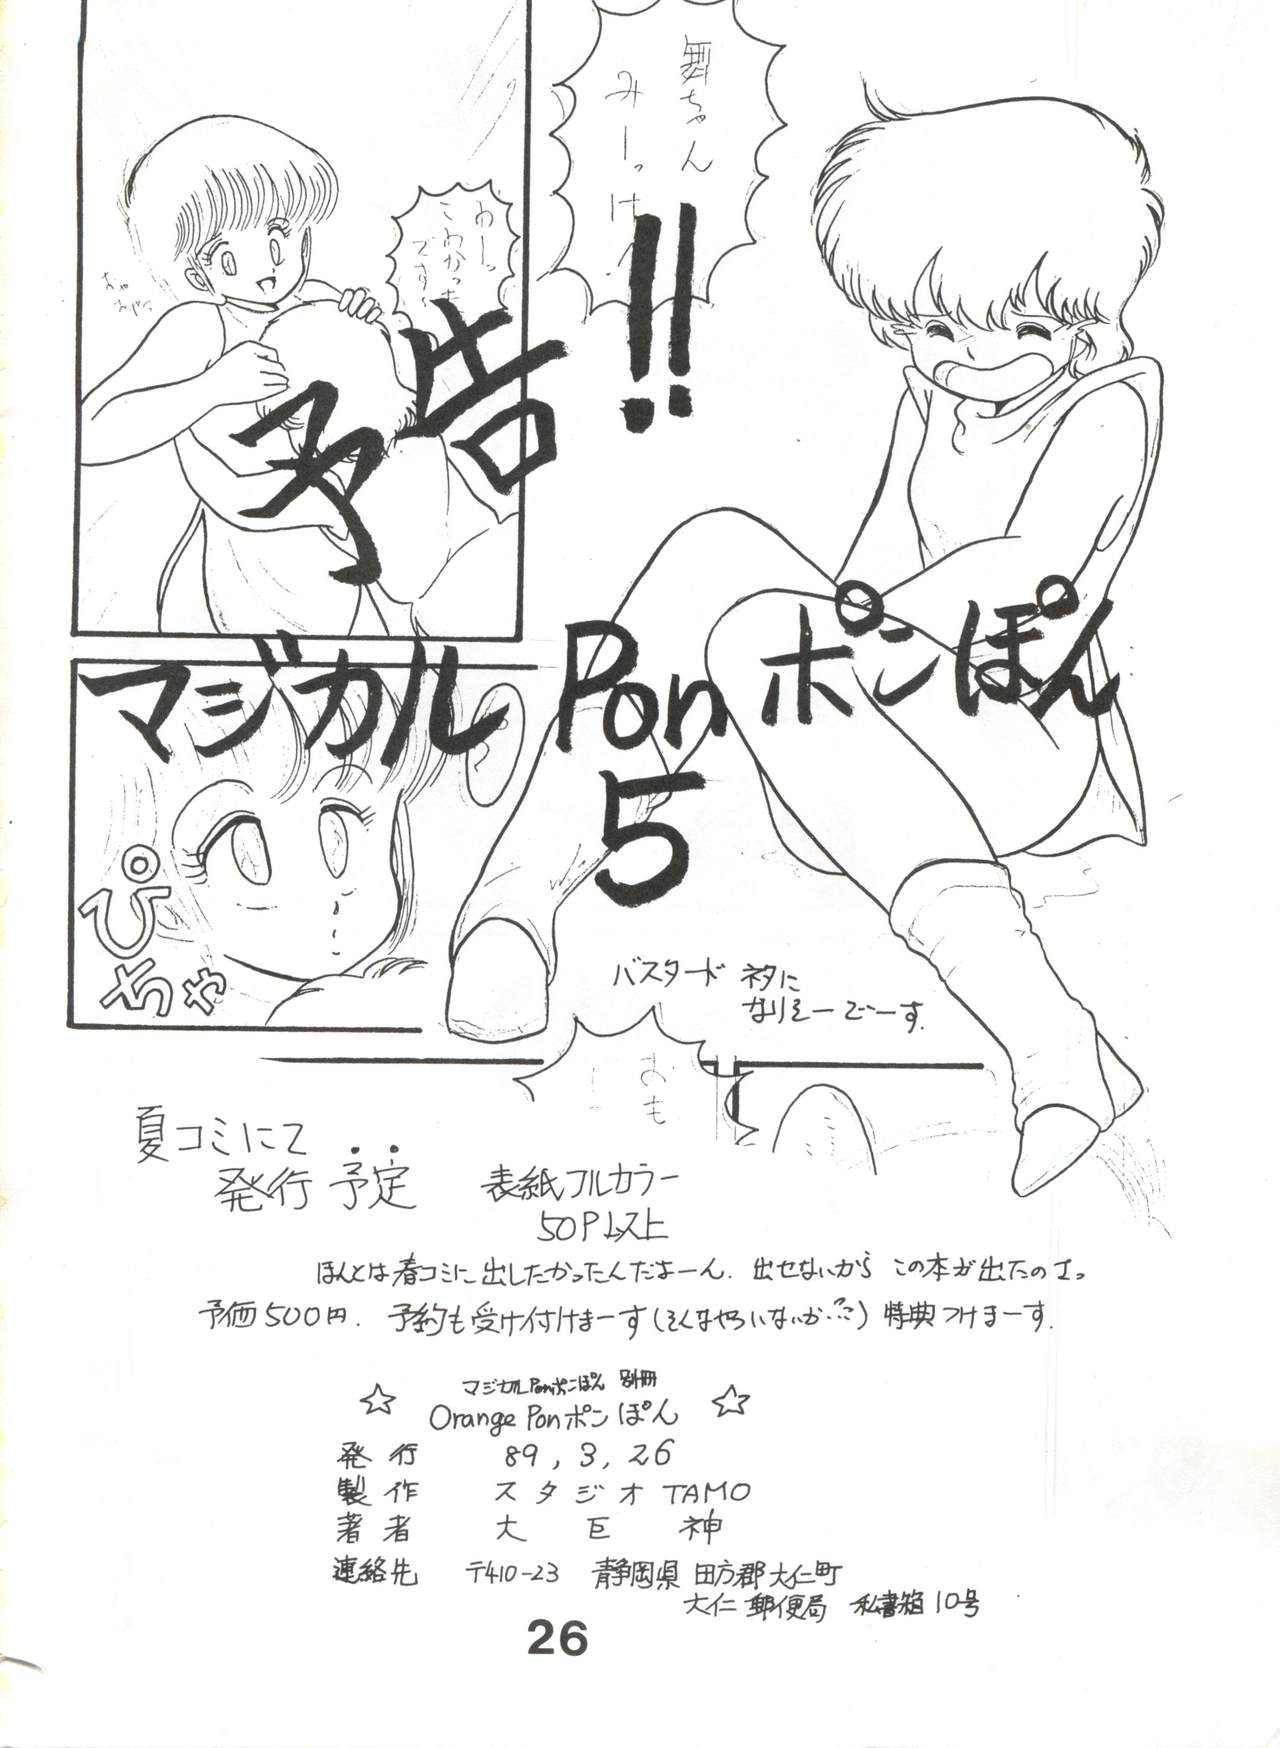 舞ちゃん
みーっけ
予告!!
マジカル Pon ポンぽん
5
ぴちゃ
バスタード ネタに
なりそーでーす.
おも
夏コミにて
発行予定
表紙フルカラー
50P以上
ほんとは春コミに出したかったんだよーん. 出せないから この本が出たのさっ
予価500円. 予約も受け付けまーす(そんなやついないか…) 特典つけまーす.
マジカルPonポンぽん 別冊
☆ Orange Pon ポンぽん ☆
発行 89, 3, 26
製作 スタジオ TAMO
著者 大巨神
連絡先 〒410-23 静岡県 田方郡 大仁町
大仁郵便局 私書箱10号
26